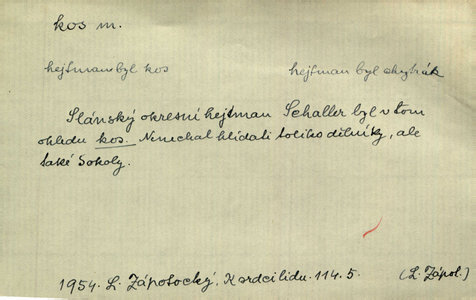 kos m.
hejtman byl kos
hejtman byl chytrák
Slánský okresní hejtman Schaller byl v tom
ohledu kos. Nenechal hlídati toliko dělníky, ale
také Sokoly.
1954. L. Zápotocký, K. 114. 5. (L. Zápol.)